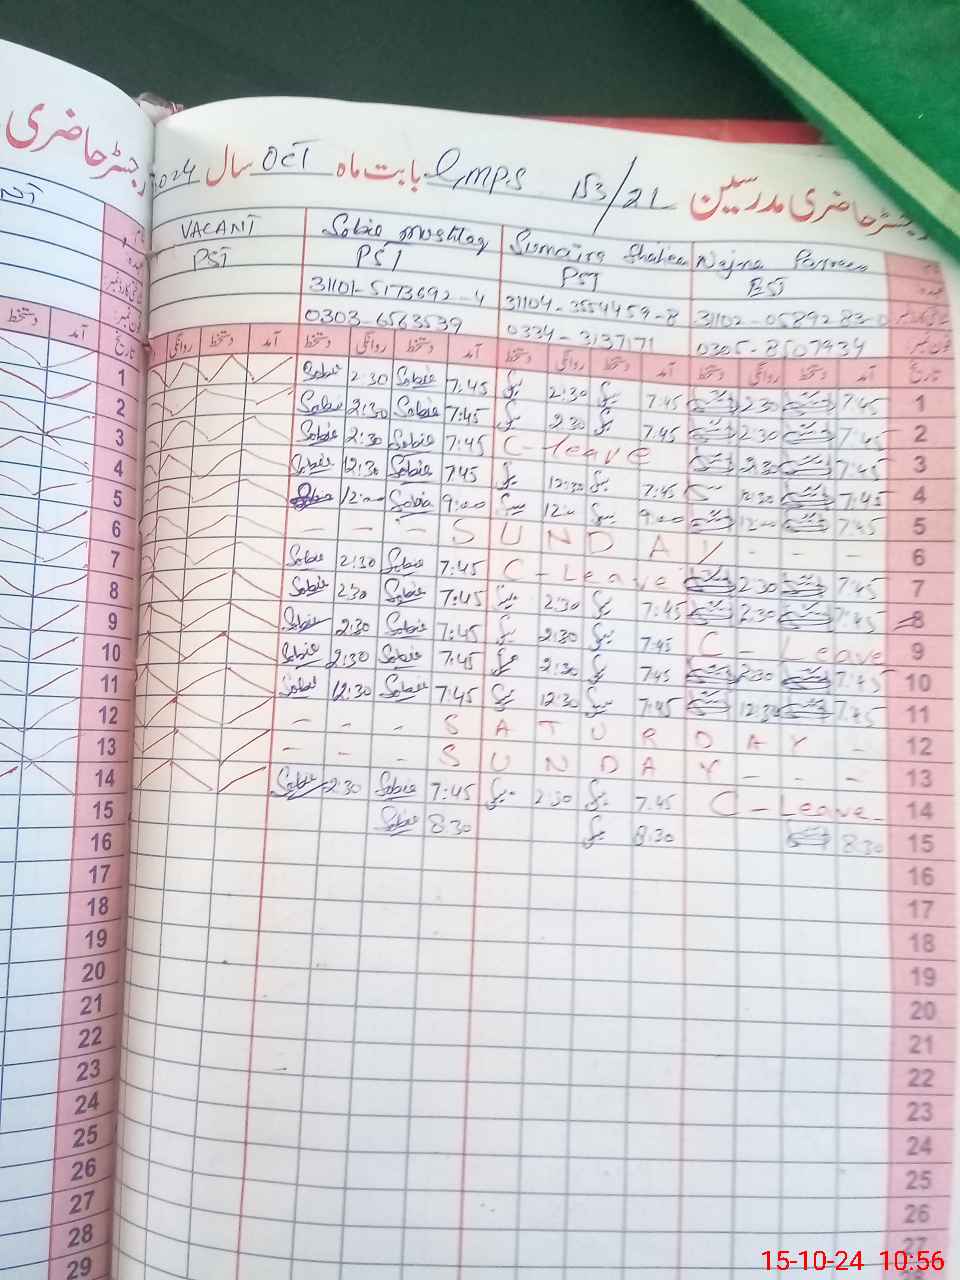 رجسٹر حاضری
رجسٹر حاضری مدرسین 153/2L GMPS بابت ماہ Oct سال 2024
VACANT Sobia mushtaq Sumaira Shaheen Najma Parveen
PST PST PST EST
31101-5173692-4 31104-3554459-8 31102-0589283-0
0303-6563539 0334-3137171 0305-8507934
تاریخ آمد دستخط روانگی دستخط آمد دستخط روانگی دستخط آمد دستخط روانگی دستخط آمد دستخط روانگی
1 Sobia 2:30 Sobia 7:45 2:30 7:45 2:30 7:45 1
2 Sobia 2:30 Sobia 7:45 2:30 7:45 2:30 7:45 2
3 Sobia 2:30 Sobia 7:45 C-leave 2:30 7:45 3
4 Sobia 12:30 Sobia 7:45 12:30 7:45 12:30 7:45 4
5 Sobia 12:00 Sobia 9:00 12:00 9:00 12:00 7:45 5
6 - - - S U N D A Y - - - 6
7 Sobia 2:30 Sobia 7:45 C-Leave 2:30 7:45 7
8 Sobia 2:30 Sobia 7:45 2:30 7:45 2:30 7:45 8
9 Sobia 2:30 Sobia 7:45 2:30 7:45 C - Leave 9
10 Sobia 2:30 Sobia 7:45 2:30 7:45 2:30 7:45 10
11 Sobia 12:30 Sobia 7:45 12:30 7:45 12:30 7:45 11
12 - - - S A T U R D A Y - 12
13 - - - S U N D A Y - - - 13
14 Sobia 2:30 Sobia 7:45 2:30 7:45 C - Leave 14
15 Sobia 8:30 8:30 8:30 15
16 16
17 17
18 18
19 19
20 20
21 21
22 22
23 23
24 24
25 25
26 26
27 27
28
29
15-10-24 10:56